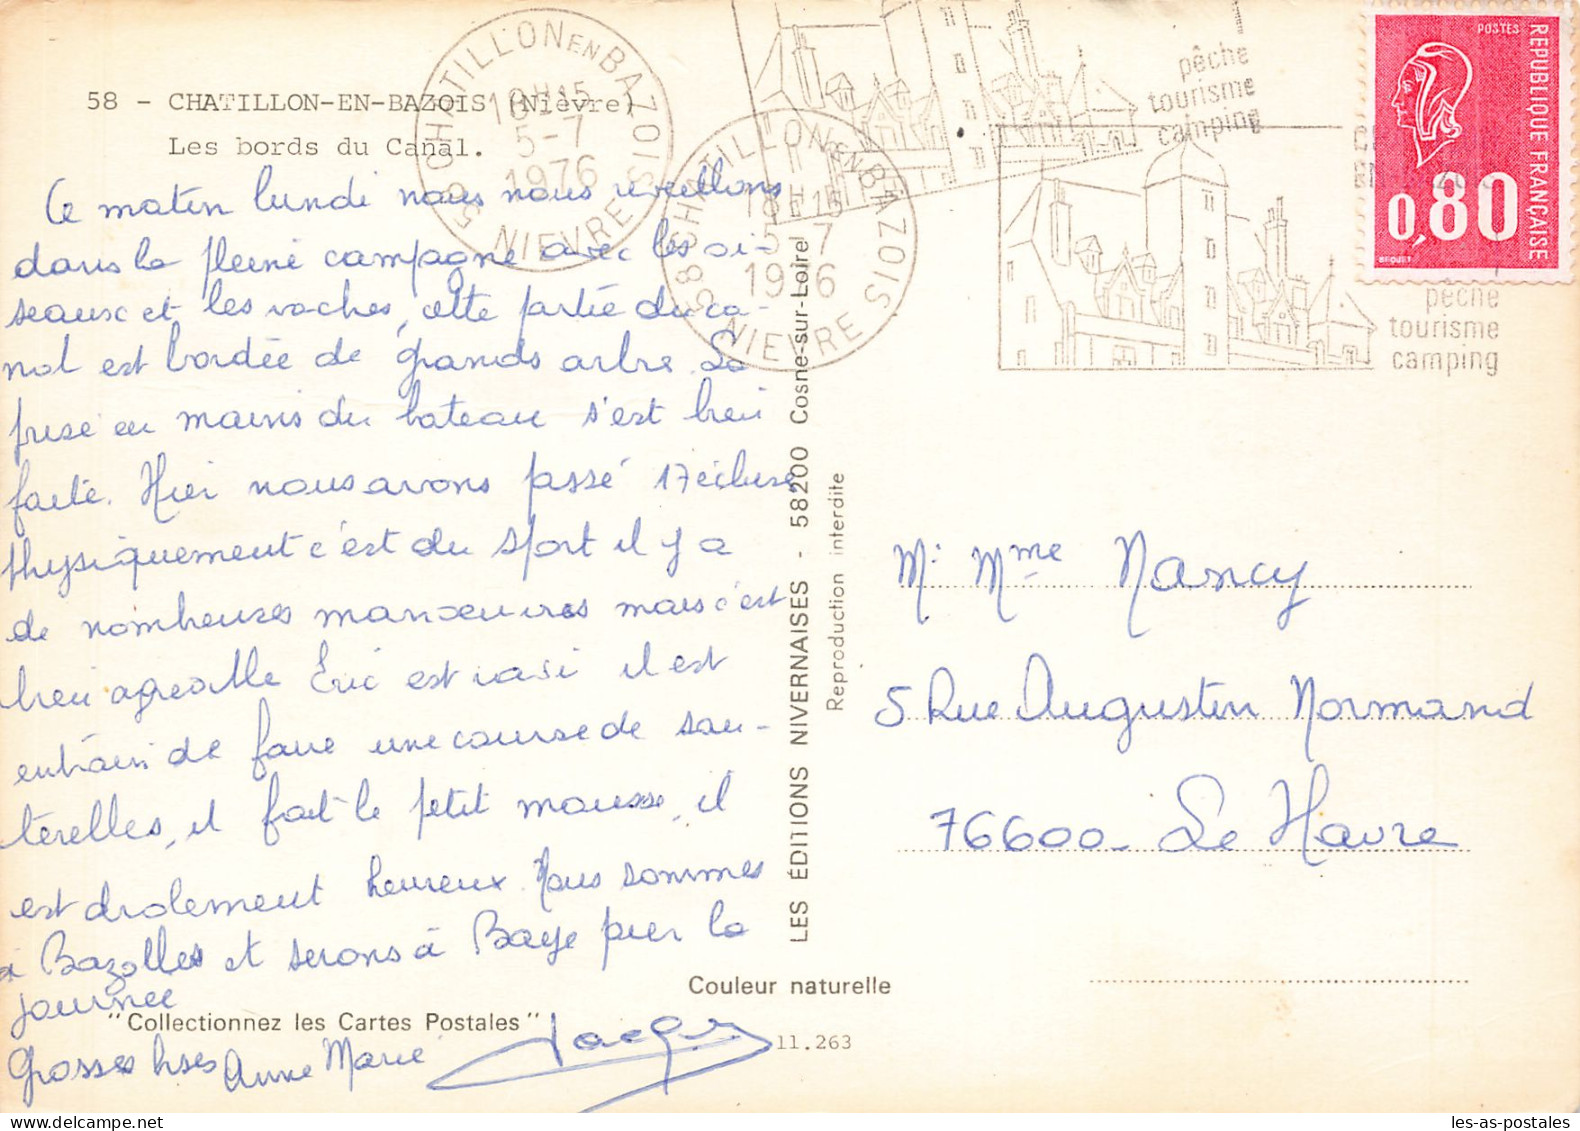 58 - CHATILLON-EN-BAZOIS (Nièvre)
Les bords du Canal.
Ce matin lundi nous nous reveillons
dans la pleine campagne avec les oi-
seaux et les vaches, cette partie du ca-
nal est bordée de grands arbre. La
prise en mains du bateau s'est bien
faite. Hier nous avons passé 17 écluse
Physiquement c'est du sport il y a
de nombreuses manoeuvres mais c'est
bien agreable Eric est ravi il est
entrain de faire une course de sau-
terelles, il fait le petit mousse, il
est drolement heureux. Nous sommes
à Bazolles et serons à Baye pour la
journee
Grosses bises Anne Marie Jacques
CHATILLON EN BAZOIS
18H15
5-7
1976
58 NIEVRE
CHATILLON EN BAZOIS
18H15
5-7
1976
58 NIEVRE
pêche
tourisme
camping
pêche
tourisme
camping
POSTES
REPUBLIQUE FRANÇAISE
0,80
BEQUET
LES ÉDITIONS NIVERNAISES - 58200 Cosne-sur-Loire
Reproduction interdite
M. Mme Nancy
5 Rue Augustin Normand
76600 - Le Havre
Couleur naturelle
"Collectionnez les Cartes Postales"
11.263
les-as-postales